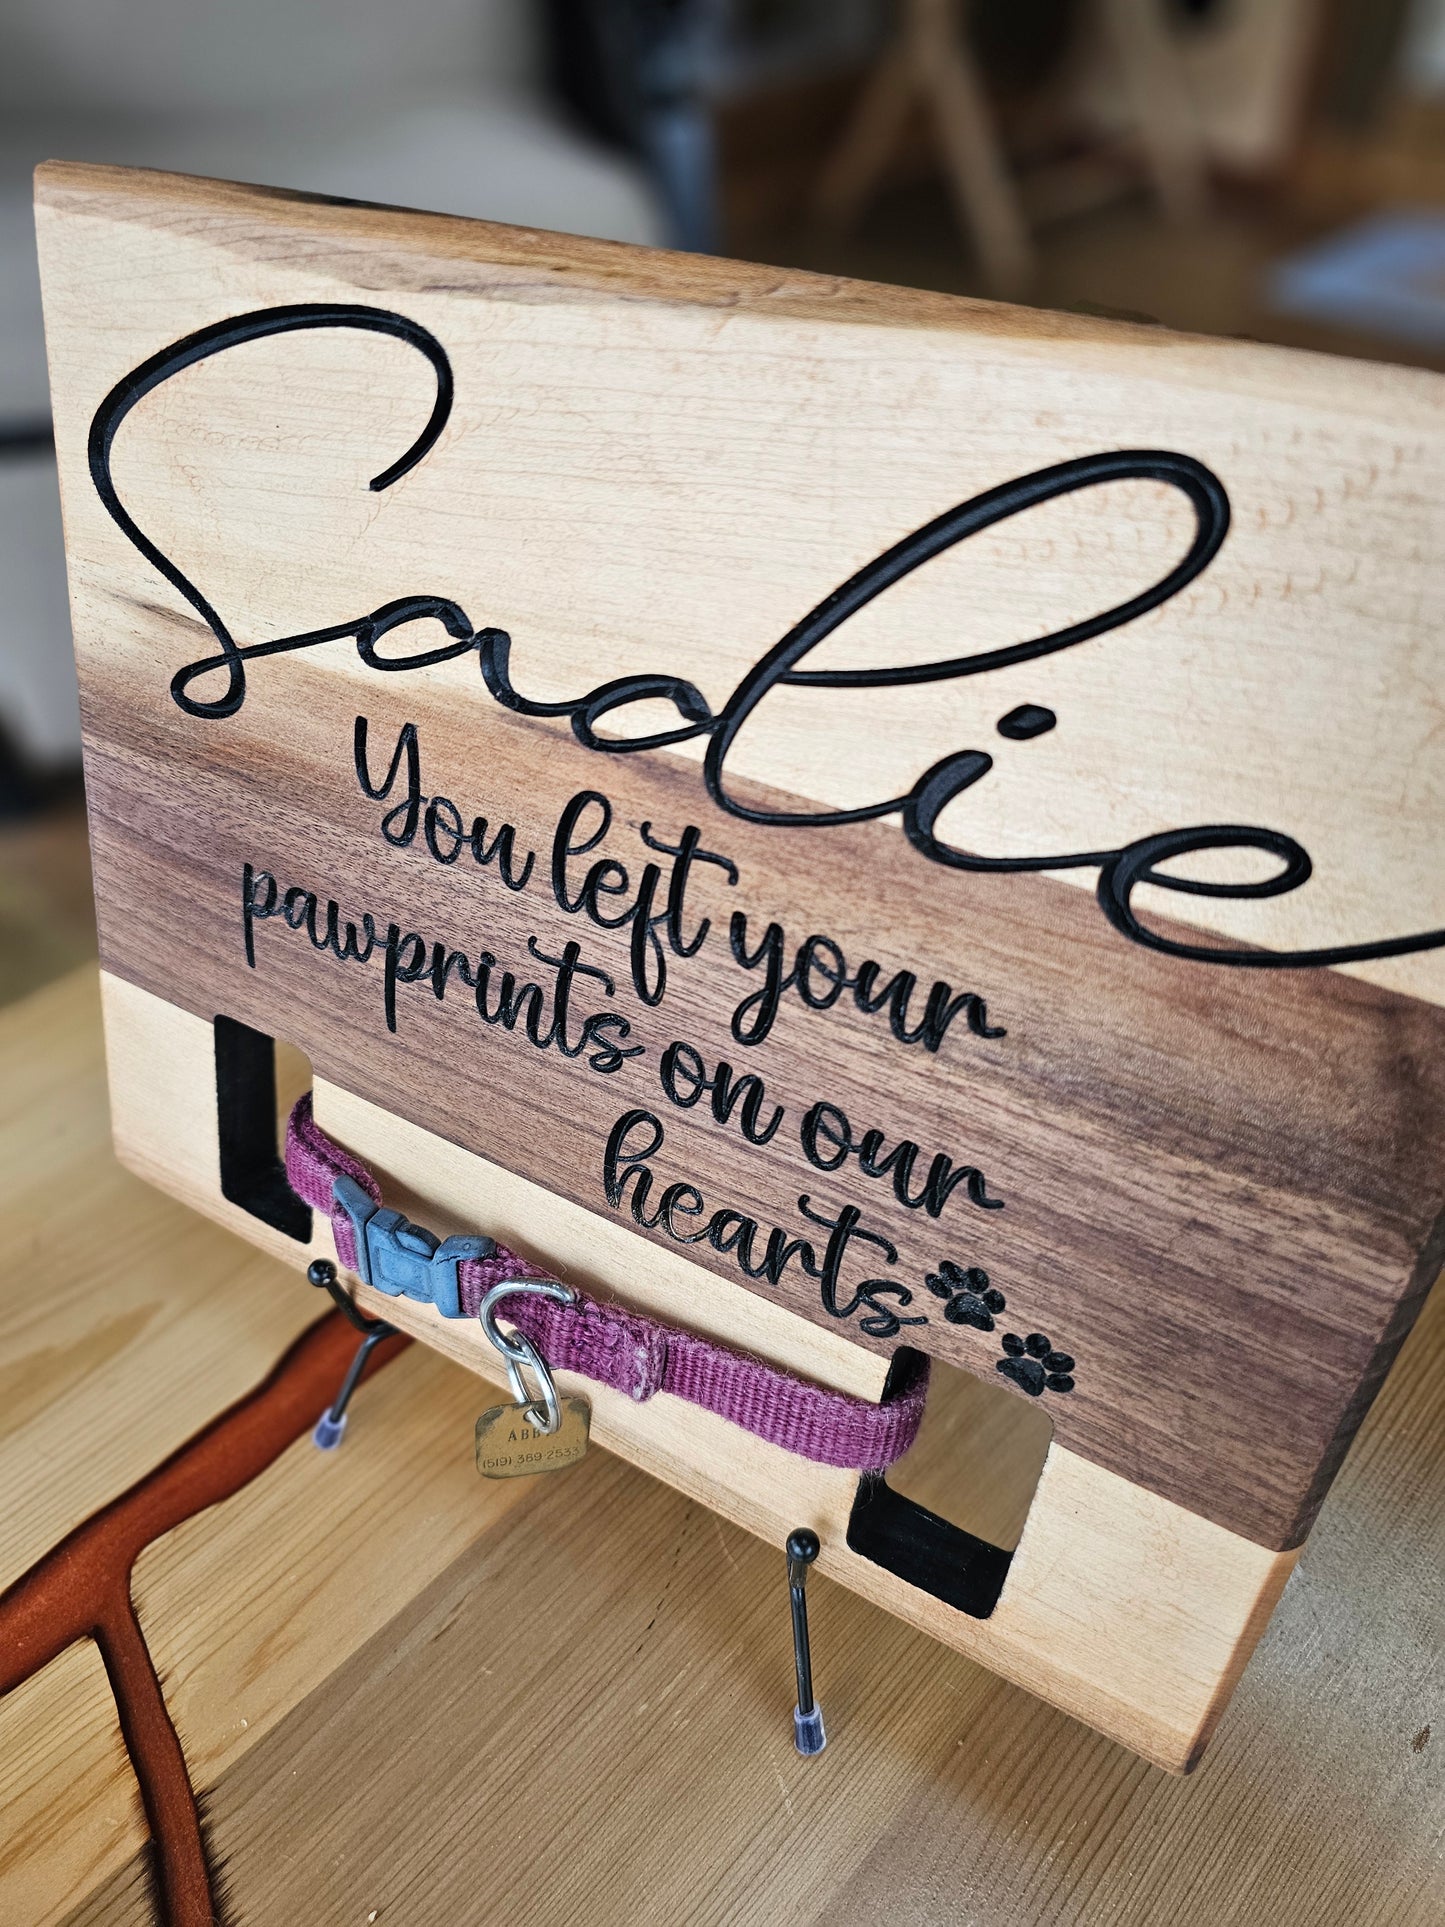 Sadie
You left your
pawprints on our
hearts
(519) 389-2533